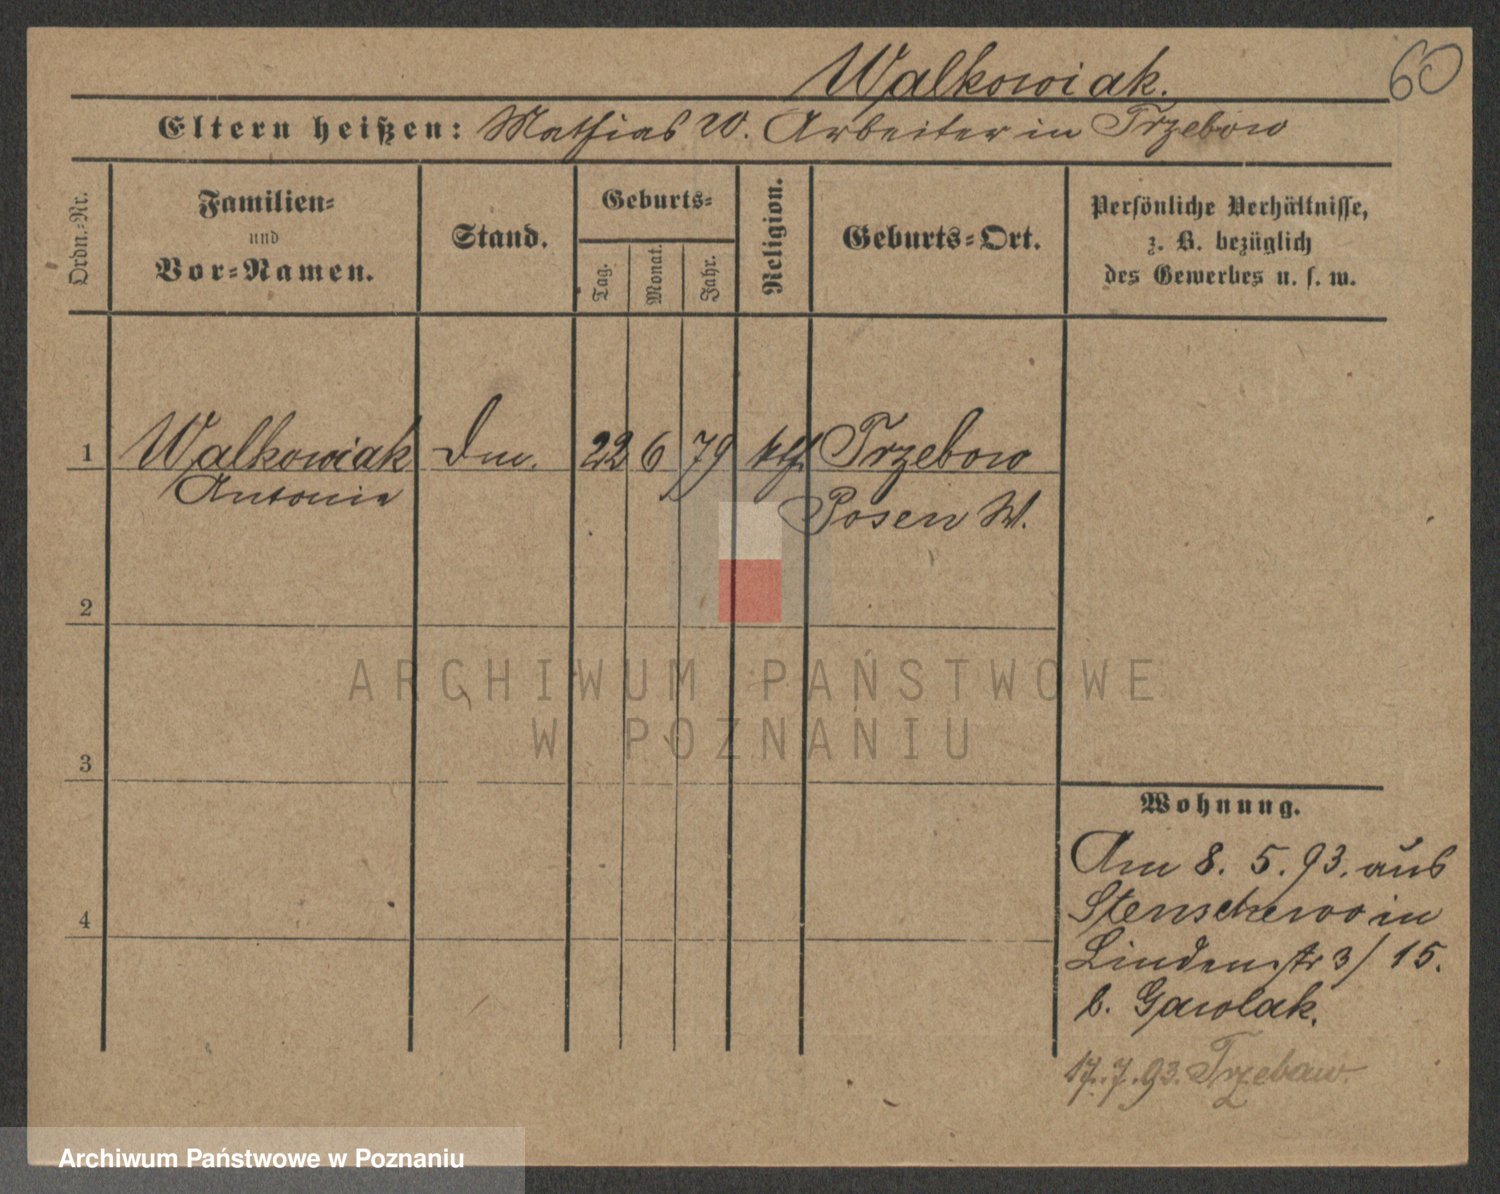 Walkowiak.
60
Eltern heißen: Mathias W. Arbeiter in Trzebow
Ordn.-Nr.
Familien-
und
Vor-Namen.
Stand.
Geburts-
Tag.
Monat.
Jahr.
Religion.
Geburts-Ort.
Persönliche Verhältnisse,
z. B. bezüglich
des Gewerbes u. s. w.
1 Walkowiak 22 6 79 kth Trzebow
Antonie Posen W.
2
ARCHIWUM PAŃSTWOWE
W POZNANIU
3
4
Wohnung.
Am 8. 5. 93. aus
Stenschewo in
Lindenstr 3/15.
b. Gawlak.
17.7.93. Trzebaw.
Archiwum Państwowe w Poznaniu